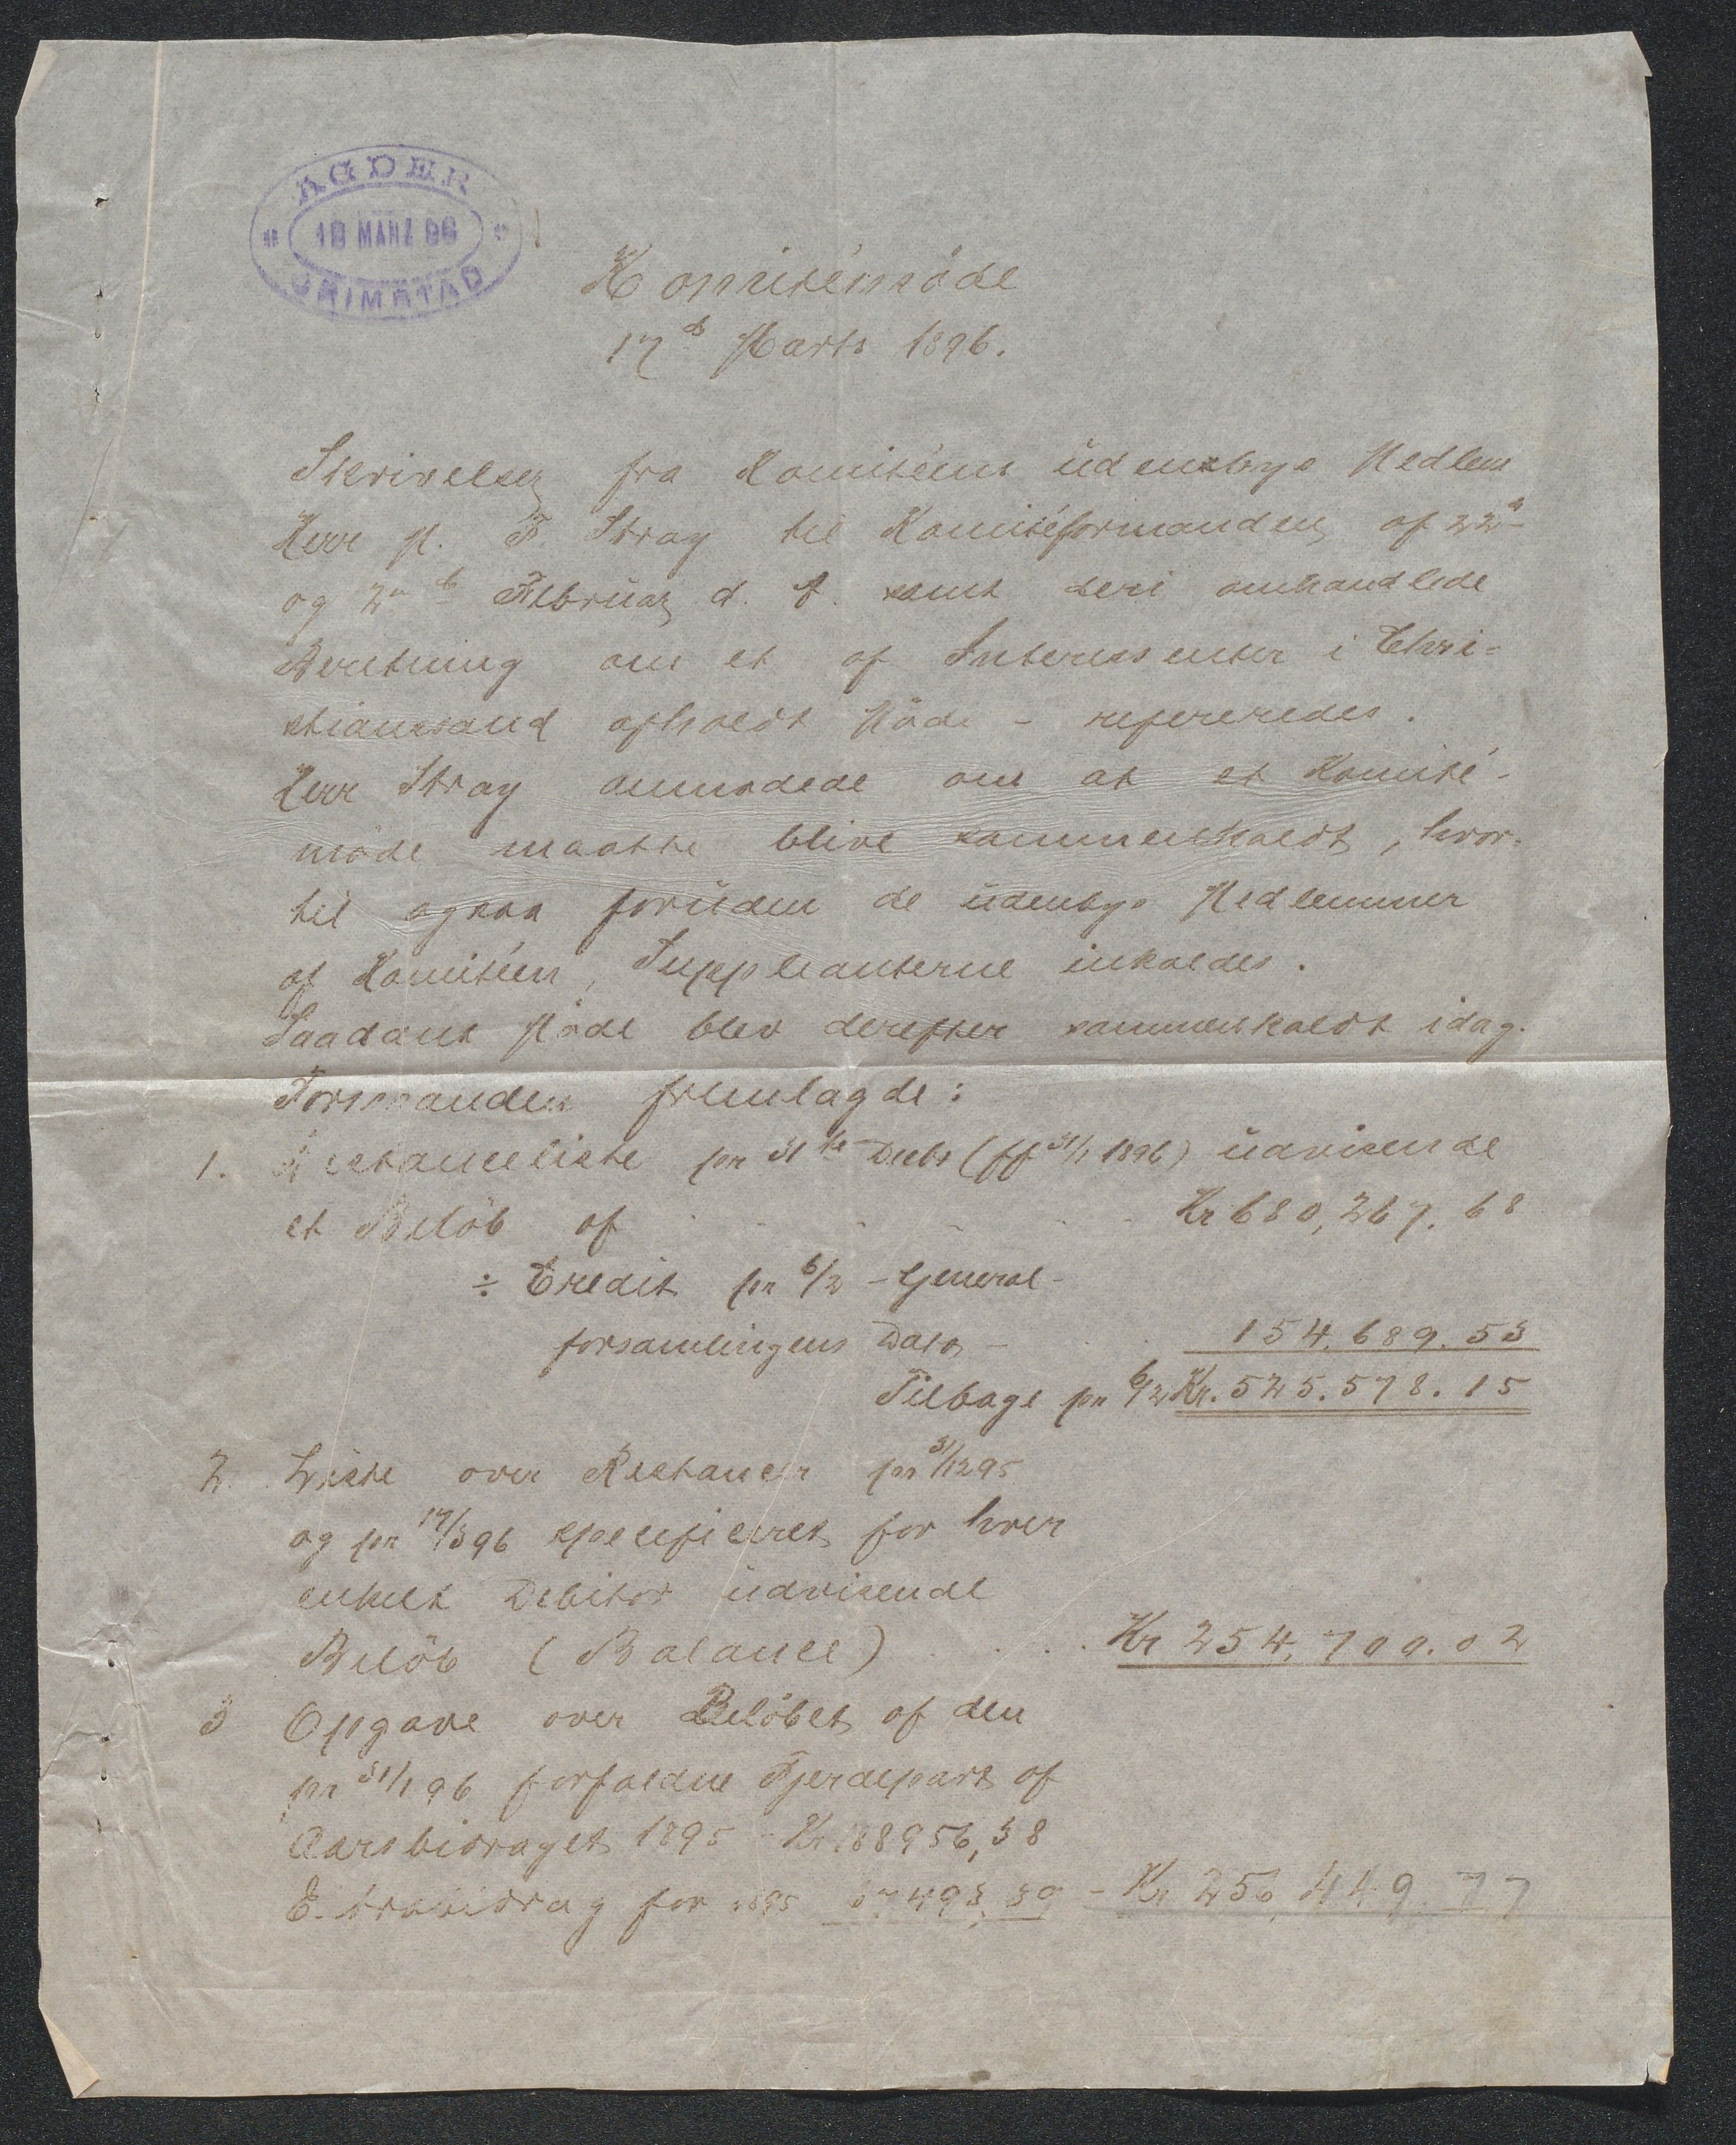 AGDER
18 MARZ 96
GRIMSTAD
Komitémöde
17de Marts 1896.
Skrivelser fra Komitéens udenbys Medlem
Herr M. F. Stray til Komitéformanden af 22de
og Februar d. A. samt deri omhandlede
Beretning om et af Interessenter i Chri=
stianssand afholdt Möde - refereredes.
Herr Stray anmodede om at et Komité-
möde maatte blive sammenkaldt, hvor-
til ogsaa foruden de udenbys Medlemmer
af Komitéen, Suppleanterne inkaldes.
Saadant Möde blev derefter sammenkaldt idag.
Formanden fremlagde:
1. Restanceliste pr 31te Decbr (ff 31/1 1896) udvisende
et Belöb af Kr 680,267.68
÷ Credit pr 6/2 - General-
forsamlingens Dato - 154.689.53
Tilbage pr 6/2 Kr. 525.578.15
2. Liste over Restancer pr 31/12 95
og pr 17/3 96 specificeret for hver
enkelt Debitor udvisende
Belöb (Balance) Kr 254,700.02
3 Opgave over Belöbet af den
pr 31/1 96 forfaldne Fjerdepart af
Aarsbidraget 1895 - Kr 188956,38
Extrabidrag for 1895 67493,39 - Kr 256,449.77